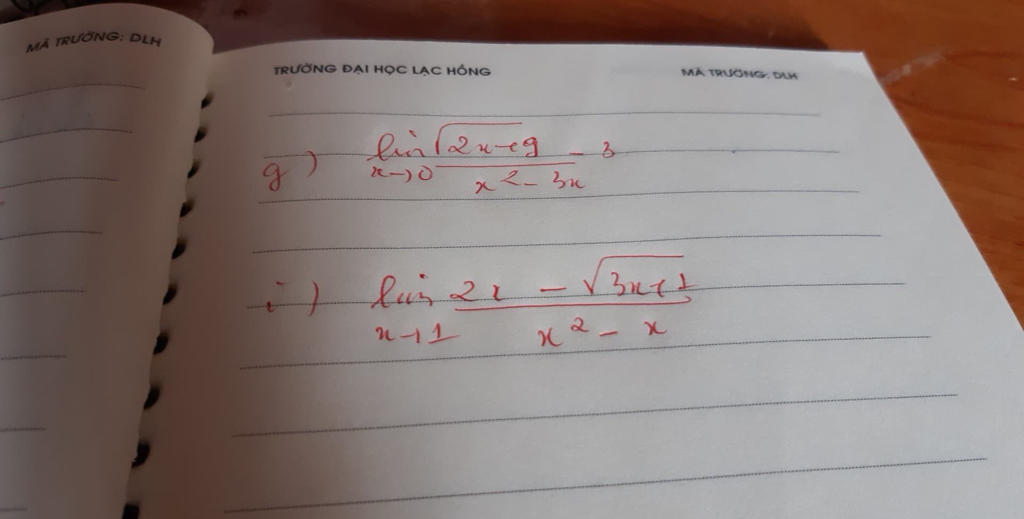 MÃ TRƯỜNG: DLH
TRƯỜNG ĐẠI HỌC LẠC HỒNG
MÃ TRƯỜNG: DLH
g) lim √2x+9 - 3
x→0 x² - 3x
i) lim 2x - √3x+1
x→1 x² - x